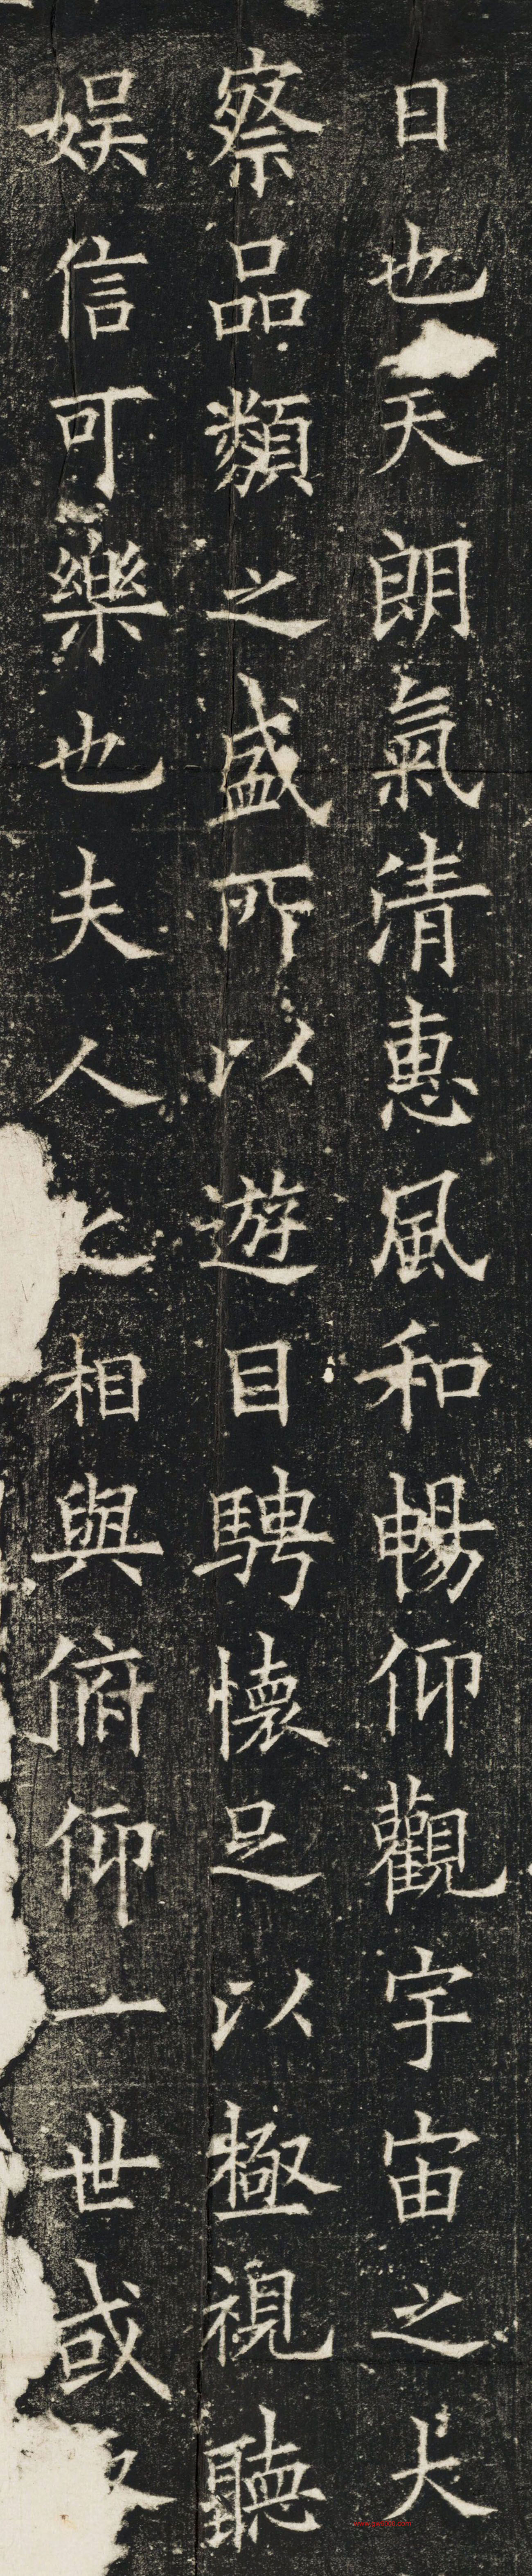 日也天朗氣清惠風和暢仰觀宇宙之大
察品類之盛所以遊目騁懷足以極視聽
娛信可樂也夫人之相與俯仰一世或